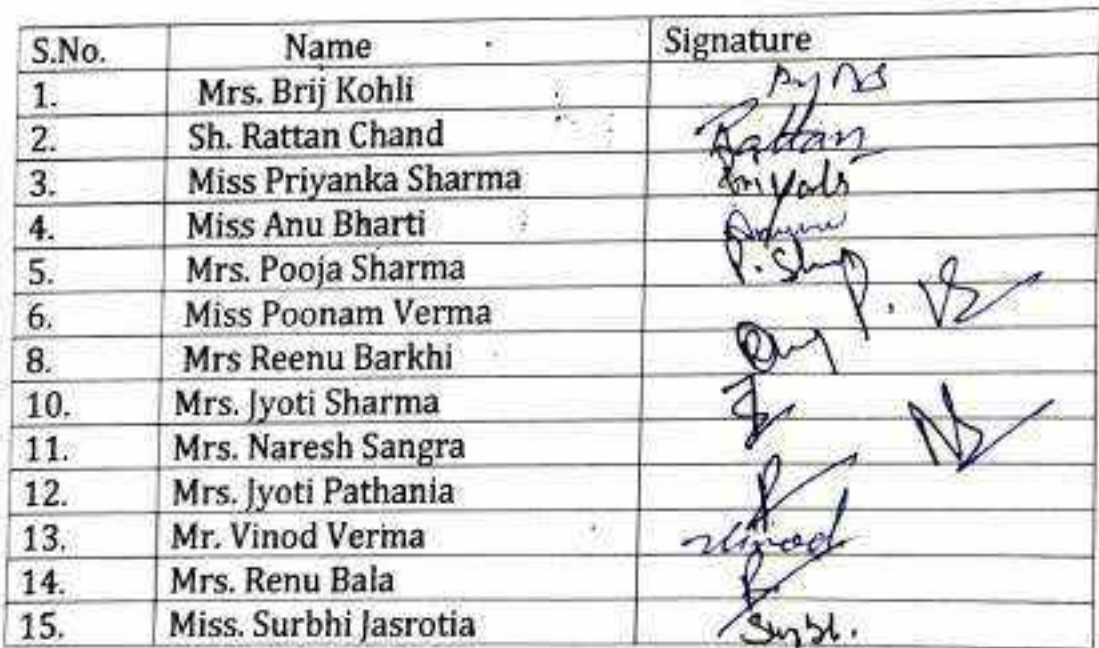 S.No. Name Signature
1. Mrs. Brij Kohli
2. Sh. Rattan Chand Rattan
3. Miss Priyanka Sharma
4. Miss Anu Bharti
5. Mrs. Pooja Sharma
6. Miss Poonam Verma
8. Mrs Reenu Barkhi
10. Mrs. Jyoti Sharma
11. Mrs. Naresh Sangra
12. Mrs. Jyoti Pathania
13. Mr. Vinod Verma Vinod
14. Mrs. Renu Bala
15. Miss. Surbhi Jasrotia